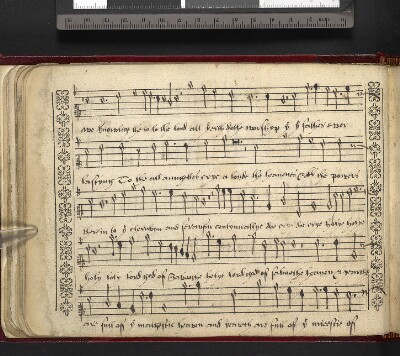 we knowleg to be the lord all the erth dothe worshyp ye father ever
lastyng To the all aungelles crye a lowde the heavens & all the powers
therin to ye cherubyn and seraphin contynuallye doo crie crye holye holye
holy holy lord god of Sabaothe holye lord god of sabaothe heaven & yearth
are full off ye maiestie heaven and yearth are full off ye maiestie off